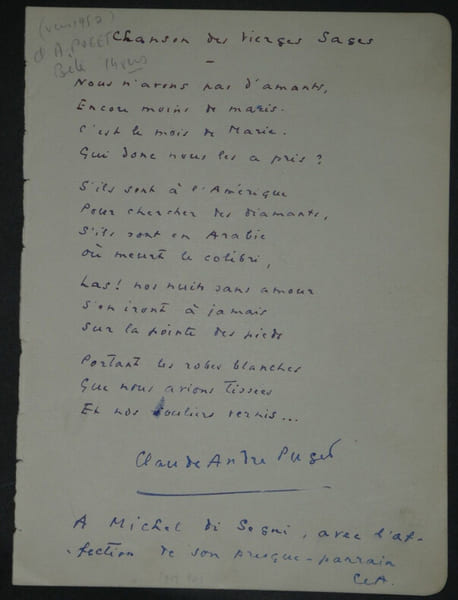 (vers 1952)
d'A. PUGET
Belle 14 vers
Chanson des Vierges Sages
—
Nous n'avons pas d'amants,
Encore moins de maris.
C'est le mois de Marie.
Qui donc nous les a pris ?
S'ils sont à l'Amérique
Pour chercher des diamants,
S'ils sont en Arabie
Où meurt le colibri,
Las! nos nuits sans amour
S'en iront à jamais
Sur la pointe des pieds
Portant les robes blanches
Que nous avions tissées
Et nos souliers vernis...
Claude André Puget
A Michel di Segni, avec l'af-
-fection de son presque-parrain
CA.